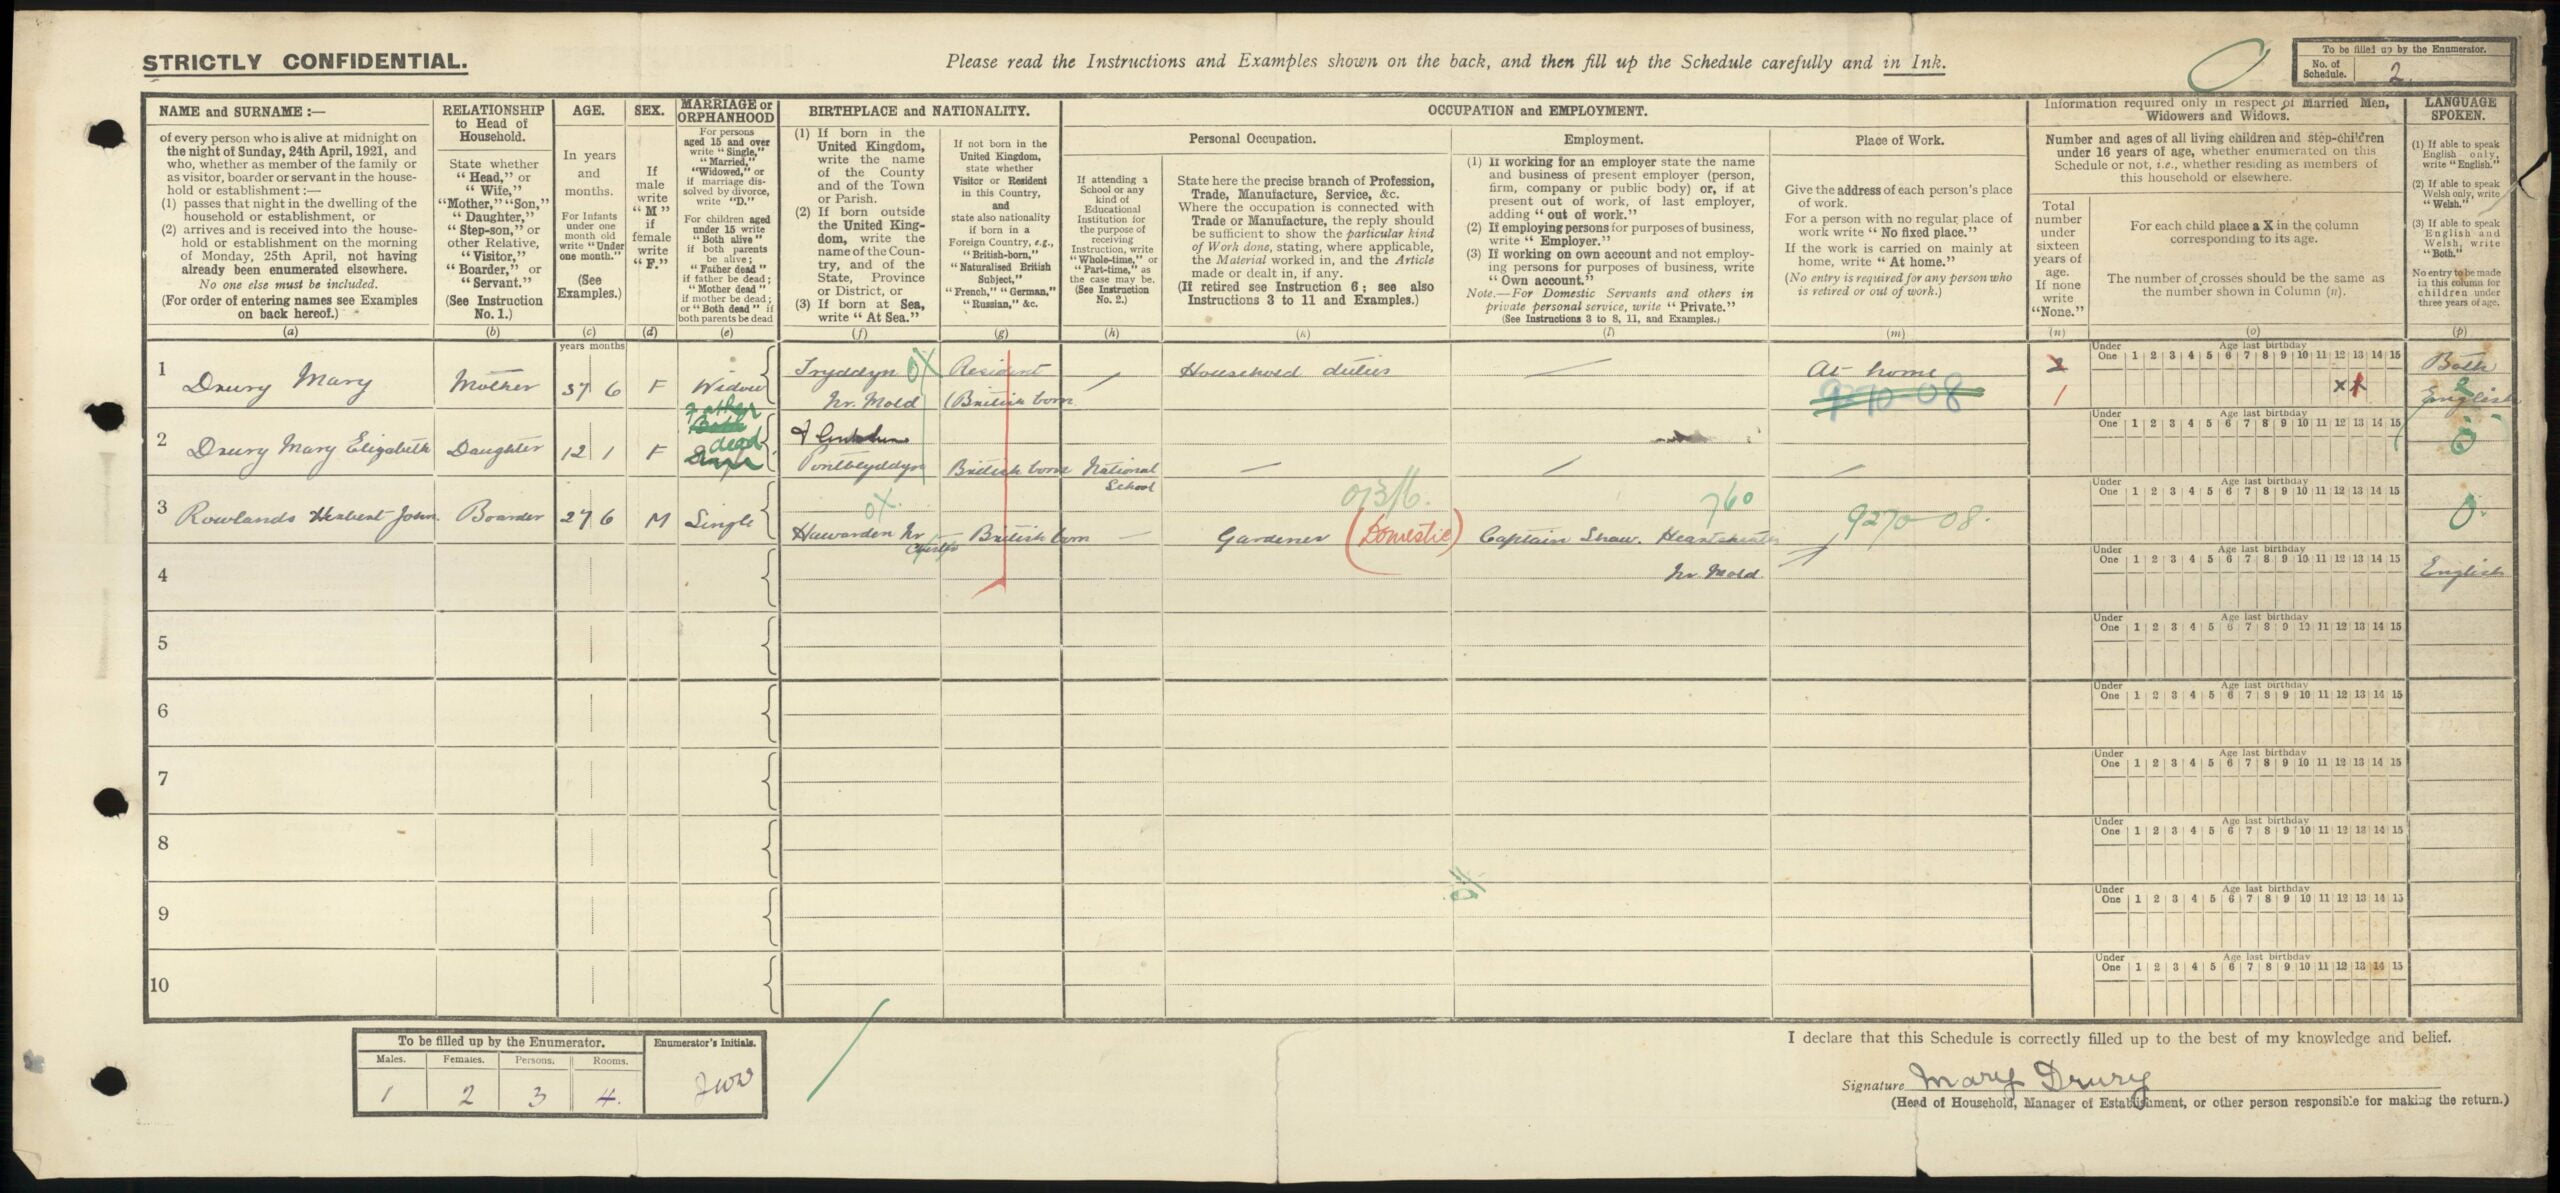 STRICTLY CONFIDENTIAL.
Please read the Instructions and Examples shown on the back, and then fill up the Schedule carefully and in Ink.
To be filled up by the Enumerator.
No. of Schedule. 2.
NAME and SURNAME :—
of every person who is alive at midnight on
the night of Sunday, 24th April, 1921, and
who, whether as member of the family or
as visitor, boarder or servant in the house-
hold or establishment :—
(1) passes that night in the dwelling of the
household or establishment, or
(2) arrives and is received into the house-
hold or establishment on the morning
of Monday, 25th April, not having
already been enumerated elsewhere.
No one else must be included.
(For order of entering names see Examples
on back hereof.)
(a)
RELATIONSHIP
to Head of
Household.
State whether
"Head," or
"Wife,"
"Mother," "Son,"
"Daughter,"
"Step-son," or
other Relative,
"Visitor,"
"Boarder," or
"Servant."
(See Instruction
No. 1.)
(b)
AGE.
In years
and
months.
For Infants
under one
month old
write "Under
one month."
(See
Examples.)
(c)
SEX.
If
male
write
"M"
if
female
write
"F."
(d)
MARRIAGE or
ORPHANHOOD
For persons
aged 15 and over
write "Single,"
"Married,"
"Widowed," or
if marriage dis-
solved by divorce,
write "D."
For children aged
under 15 write
"Both alive"
if both parents
be alive;
"Father dead"
if father be dead;
"Mother dead"
if mother be dead;
or "Both dead" if
both parents be dead
(e)
BIRTHPLACE and NATIONALITY.
(1) If born in the
United Kingdom,
write the name
of the County
and of the Town
or Parish.
(2) If born outside
the United King-
dom, write the
name of the Coun-
try, and of the
State, Province
or District, or
(3) If born at Sea,
write "At Sea."
(f)
If not born in the
United Kingdom,
state whether
Visitor or Resident
in this Country,
and
state also nationality
if born in a
Foreign Country, e.g.,
"British-born,"
"Naturalised British
Subject,"
"French," "German,"
"Russian," &c.
(g)
OCCUPATION and EMPLOYMENT.
If attending a
School or any
kind of
Educational
Institution for
the purpose of
receiving
Instruction, write
"Whole-time," or
"Part-time," as
the case may be.
(See Instruction
No. 2.)
(h)
Personal Occupation.
State here the precise branch of Profession,
Trade, Manufacture, Service, &c.
Where the occupation is connected with
Trade or Manufacture, the reply should
be sufficient to show the particular kind
of Work done, stating, where applicable,
the Material worked in, and the Article
made or dealt in, if any.
(If retired see Instruction 6; see also
Instructions 3 to 11 and Examples.)
(k)
Employment.
(1) If working for an employer state the name
and business of present employer (person,
firm, company or public body) or, if at
present out of work, of last employer,
adding "out of work."
(2) If employing persons for purposes of business,
write "Employer."
(3) If working on own account and not employ-
ing persons for purposes of business, write
"Own account."
Note.—For Domestic Servants and others in
private personal service, write "Private."
(See Instructions 3 to 8, 11, and Examples.)
(l)
Place of Work.
Give the address of each person's place
of work.
For a person with no regular place of
work write "No fixed place."
If the work is carried on mainly at
home, write "At home."
(No entry is required for any person who
is retired or out of work.)
(m)
Information required only in respect of Married Men,
Widowers and Widows.
Number and ages of all living children and step-children
under 16 years of age, whether enumerated on this
Schedule or not, i.e., whether residing as members of
this household or elsewhere.
Total
number
under
sixteen
years of
age.
If none
write
"None."
(n)
For each child place a X in the column
corresponding to its age.
The number of crosses should be the same as
the number shown in Column (n).
(o)
LANGUAGE
SPOKEN.
(1) If able to speak
English only,
write "English."
(2) If able to speak
Welsh only, write
"Welsh."
(3) If able to speak
English and
Welsh, write
"Both."
No entry to be made
in this column for
children under
three years of age.
(p)
years months
1 Drury Mary Mother 37 6 F Widow Tryddyn Nr. Mold Resident (British born Household duties At home 9270-08 2 1 XX Both
2 Drury Mary Elizabeth Daughter 12 1 F Father dead Pontblyddyn British born National School English
3 Rowlands Herbert John. Boarder 27 6 M Single Hawarden Nr Chester British born Gardener (Domestic) Captain Shaw. Nr. Mold. 760 9270-08. English
4
5
6
7
8
9
10
Under One 1 2 3 4 5 6 7 8 9 10 11 12 13 14 15
Age last birthday
To be filled up by the Enumerator.
Males. Females. Persons. Rooms.
1 2 3 4.
Enumerator's Initials.
JWW
I declare that this Schedule is correctly filled up to the best of my knowledge and belief.
Signature Mary Drury
(Head of Household, Manager of Establishment, or other person responsible for making the return.)